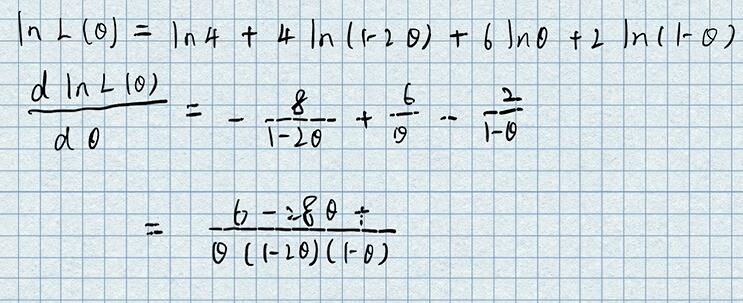 ln L(θ) = ln4 + 4 ln(1-2θ) + 6 lnθ + 2 ln(1-θ)
d ln L(θ) / dθ = - 8/(1-2θ) + 6/θ - 2/(1-θ)
= (6 - 28θ +) / (θ(1-2θ)(1-θ))